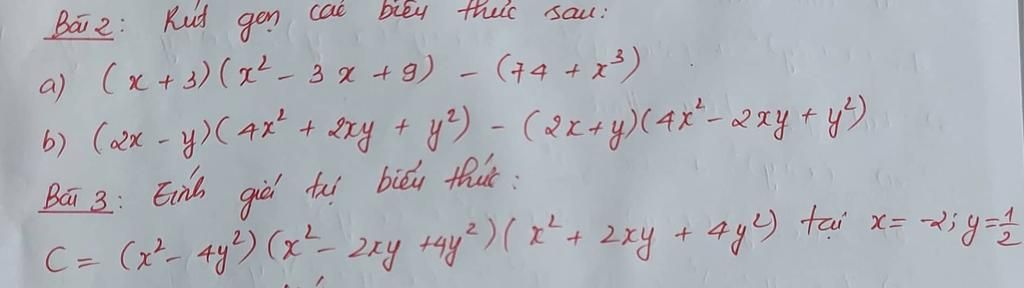 Bài 2: Rút gọn các biểu thức sau:
a) (x + 3)(x² - 3x + 9) - (74 + x³)
b) (2x - y)(4x² + 2xy + y²) - (2x+y)(4x² - 2xy + y²)
Bài 3: Tính giá trị biểu thức:
C = (x² - 4y²)(x² - 2xy + 4y²)(x² + 2xy + 4y²) tại x = -2; y = 1/2